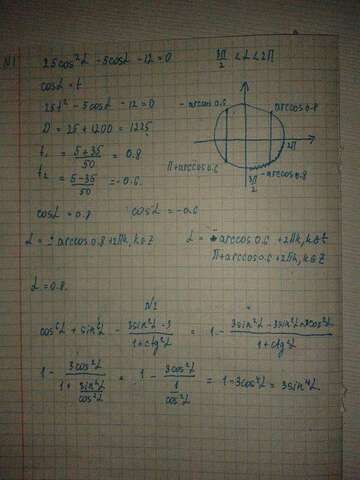 N1
25cos²α - 5cosα - 12 = 0
3π/2 < α < 2π
cosα = t
25t² - 5cosα - 12 = 0
D = 25 + 1200 = 1225
t₁ = (5+35)/50 = 0.8
t₂ = (5-35)/50 = -0.6
- arccos 0.6
arccos 0.8
π + arccos 0.6
2π
3π/2
- arccos 0.8
cosα = 0.8 cosα = -0.6
α = ± arccos 0.8 + 2πk, k∈Z α = ± arccos 0.6 + 2πk, k∈Z
π + arccos 0.6 + 2πk, k∈Z
α = 0.8.
N2
cos⁶α + sin⁶α - (3sin²α - 3)/(1 + ctg²α) = 1 - (3sin²α - 3sin²α + 3cos²α)/(1 + ctg²α)
1 - 3cos²α/(1 + sin²α/cos²α) = 1 - 3cos²α/(1/cos²α) = 1 - 3cos⁴α = 3sin⁴α